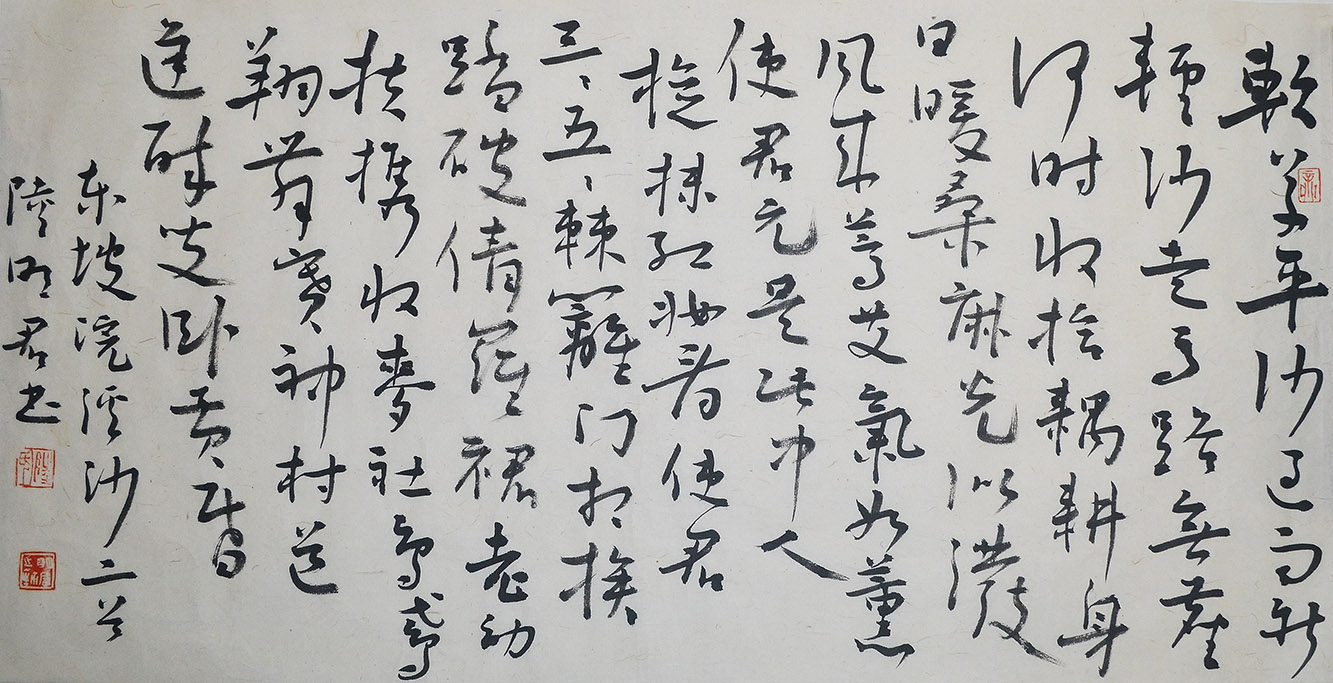 軟草平沙過雨新
輕沙走馬路無塵
何時收拾耦耕身
日暖桑麻光似潑
風來蒿艾氣如薰
使君元是此中人
旋抹紅妝看使君
三、五、棘籬門相挨
踏破倩羅裙老幼
扶攜收麥社烏鳶
翔舞賽神村道
逢醉叟臥黃昏
東坡浣溪沙二首
陸明君書